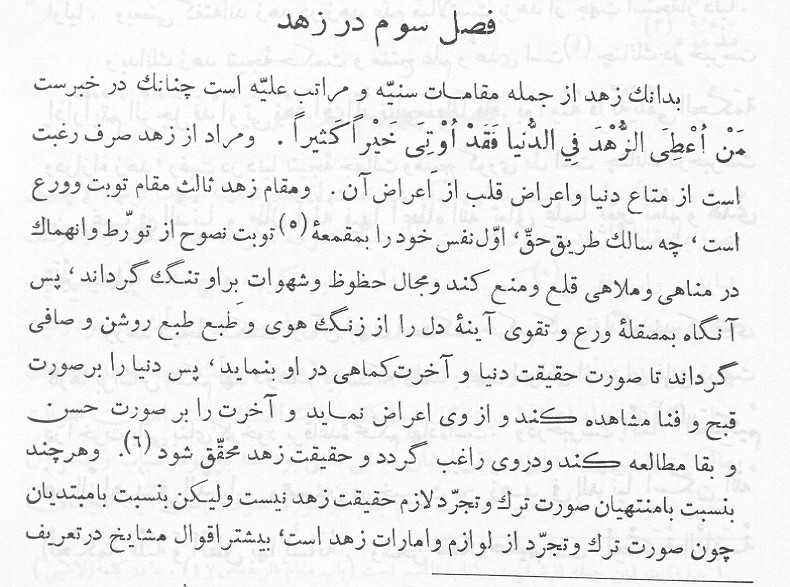 فصل سوم در زهد
بدانك زهد از جمله مقامات سنیّه و مراتب علیّه است چنانك در خبرست
مَنْ اُعْطِیَ الزُّهْدَ فِي الدُّنیا فَقَدْ اُوْتِیَ خَیْراً كَثیراً . ومراد از زهد صرف رغبت
است از متاع دنیا واعراض قلب از اَعراض آن . ومقام زهد ثالث مقام توبت وورع
است ، چه سالك طریق حقّ، اوّل نفس خود را بمقمعهٔ (۵) توبت نصوح از تورّط وانهماك
در مناهی وملاهی قلع ومنع كند ومجال حظوظ وشهوات براو تنگ گرداند ، پس
آنگاه بمصقلهٔ ورع و تقوی آینهٔ دل را از زنگ هوی و طَبع طبع روشن و صافی
گرداند تا صورت حقیقت دنیا و آخرت كماهی در او بنماید ، پس دنیا را برصورت
قبح و فنا مشاهده كند و از وی اعراض نماید و آخرت را بر صورت حسن
و بقا مطالعه كند ودروی راغب گردد و حقیقت زهد محقّق شود (۶). وهرچند
بنسبت بامنتهیان صورت ترك وتجرّد لازم حقیقت زهد نیست ولیكن بنسبت بامبتدیان
چون صورت ترك وتجرّد از لوازم وامارات زهد است، بیشتر اقوال مشایخ در تعریف